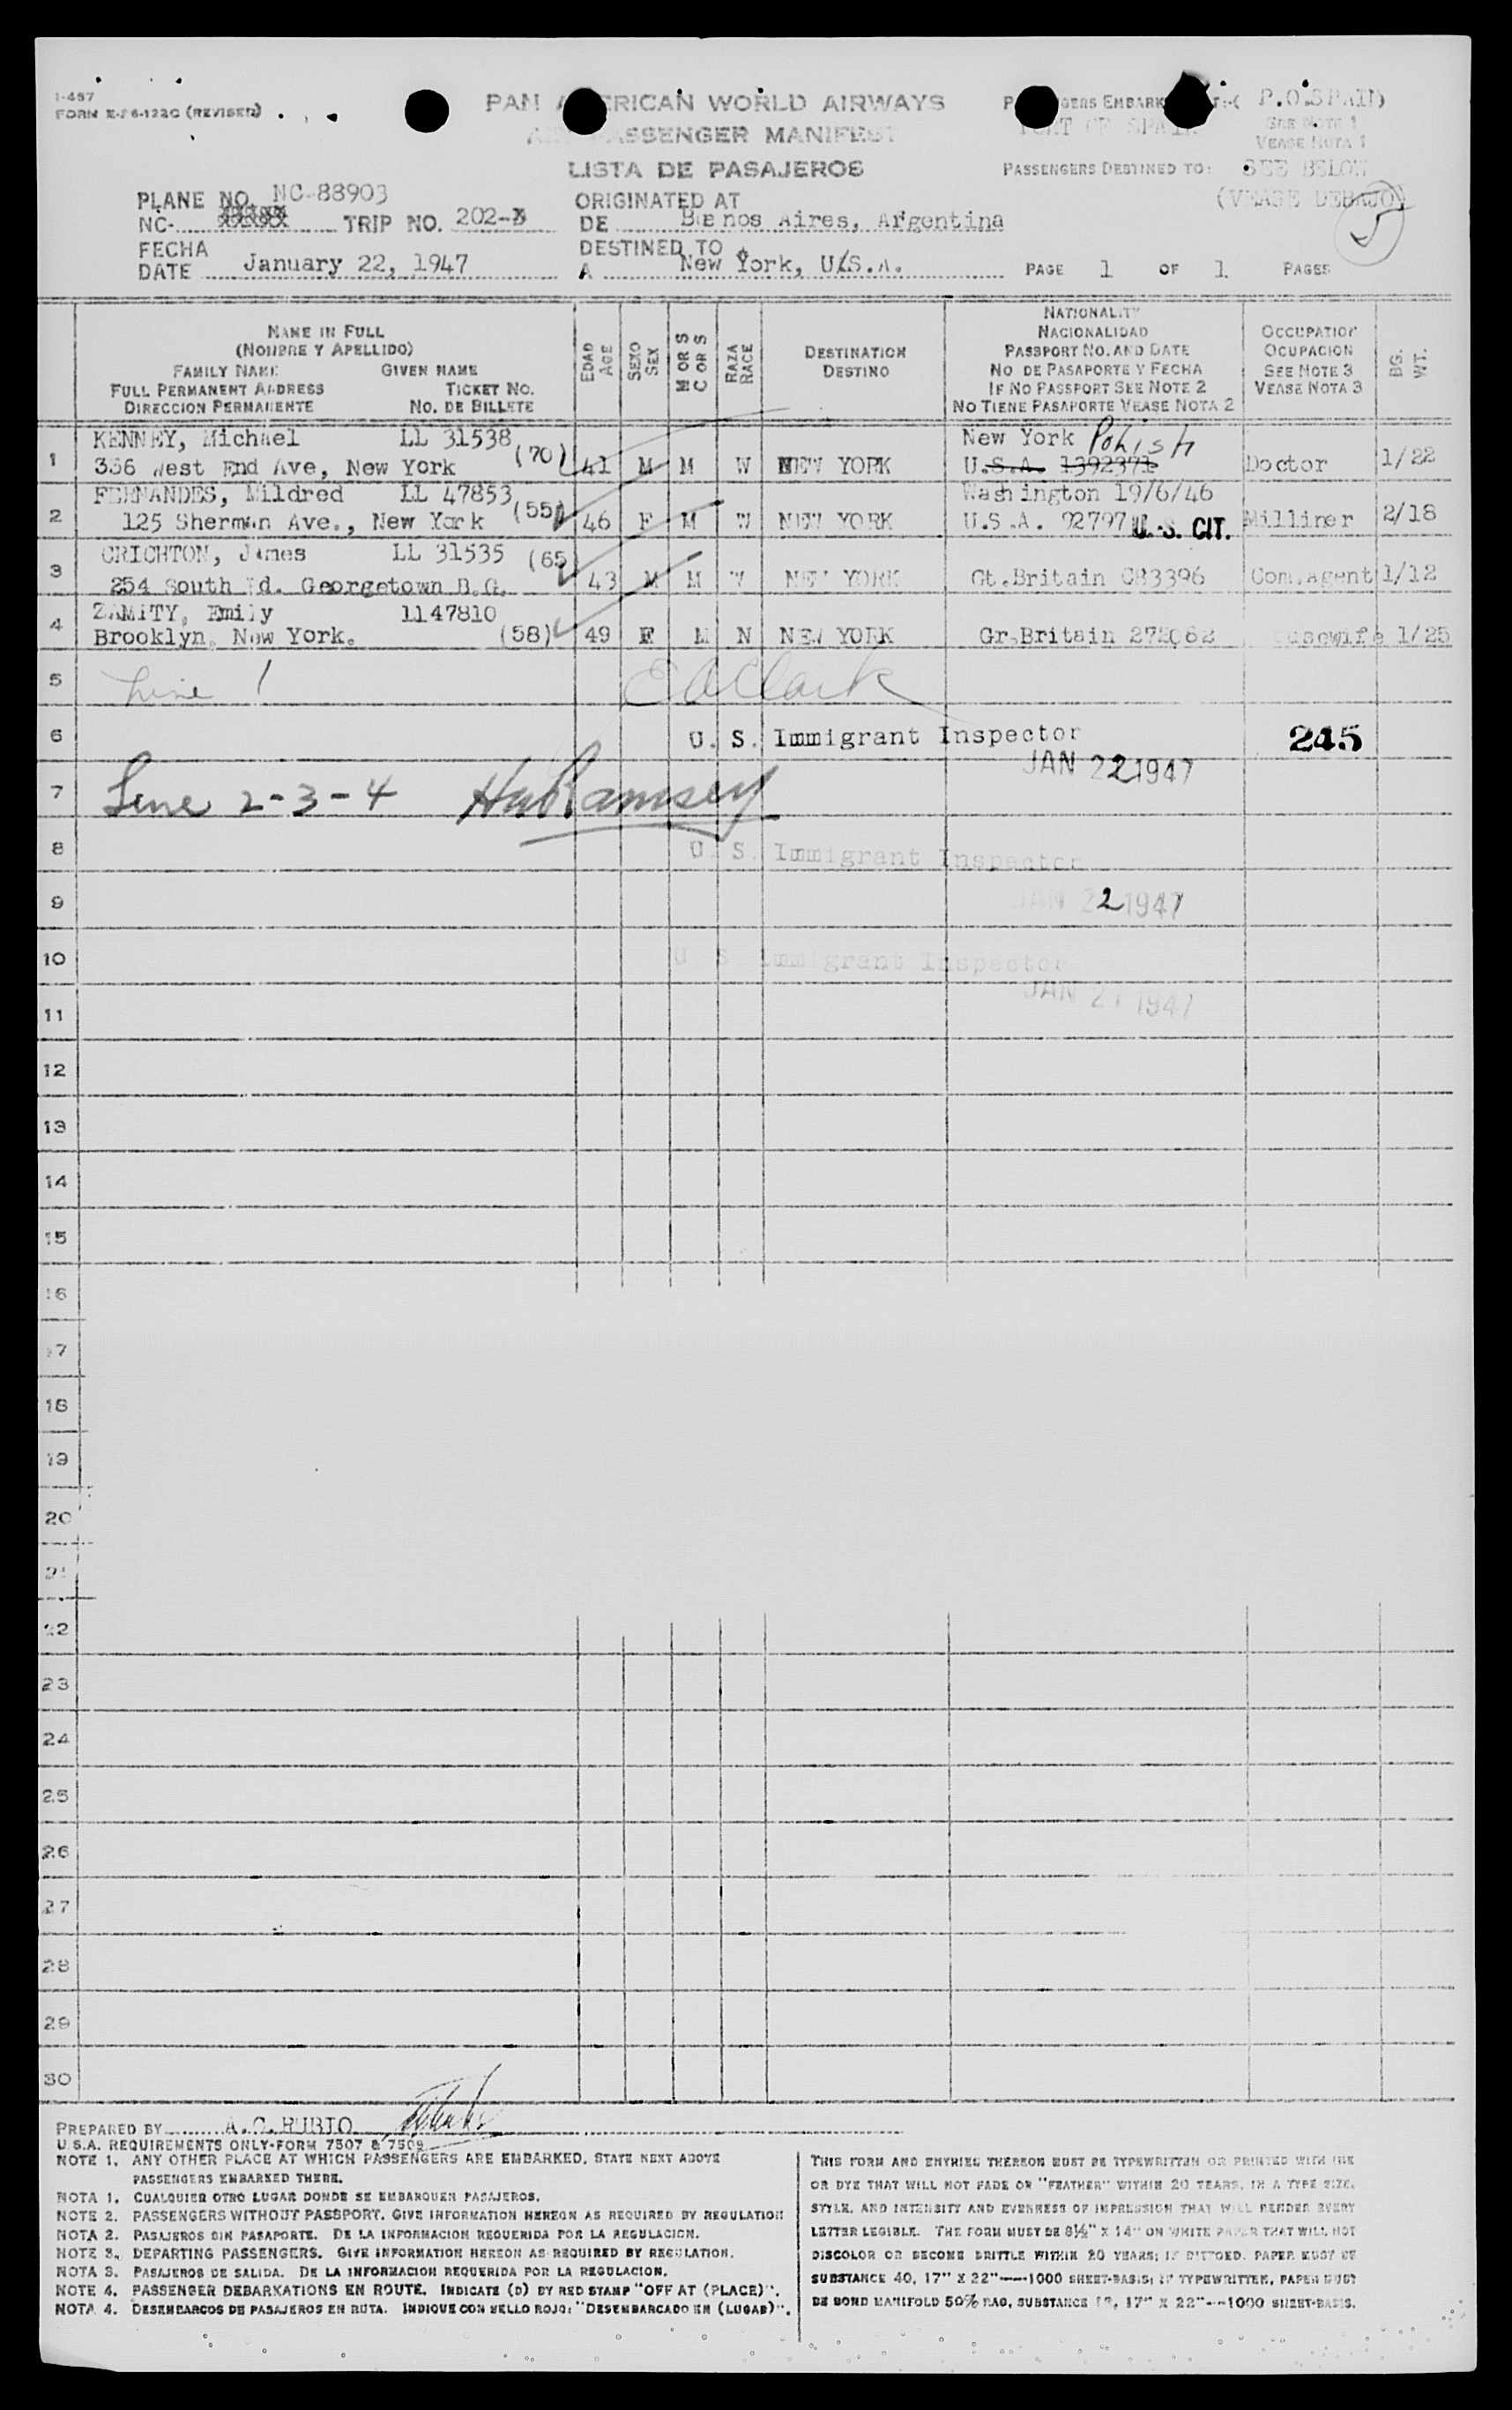 I-487
FORM E-26-122C (REVISED)
PAN AMERICAN WORLD AIRWAYS
AIR PASSENGER MANIFEST
LISTA DE PASAJEROS
PASSENGERS EMBARKED AT:-( P.O.SPAIN)
PORT OF SPAIN
SEE NOTE 1
VEASE NOTA 1
PASSENGERS DESTINED TO: SEE BELOW
(VEASE DEBAJO)
5
PLANE NO. NC-88903
NC- TRIP NO. 202-
ORIGINATED AT
DE Buenos Aires, Argentina
FECHA
DATE January 22, 1947
DESTINED TO
A New York, U.S.A.
PAGE 1 OF 1 PAGES
NAME IN FULL
(NOMBRE Y APELLIDO)
FAMILY NAME GIVEN NAME
FULL PERMANENT ADDRESS TICKET NO.
DIRECCION PERMANENTE NO. DE BILLETE
EDAD AGE
SEXO SEX
M OR S C OR S
RAZA RACE
DESTINATION
DESTINO
NATIONALITY
NACIONALIDAD
PASSPORT NO. AND DATE
NO DE PASAPORTE Y FECHA
IF NO PASSPORT SEE NOTE 2
NO TIENE PASAPORTE VEASE NOTA 2
OCCUPATION
OCUPACION
SEE NOTE 3
VEASE NOTA 3
BG. WT.
KENNEY, Michael LL 31538 New York Polish
1 336 West End Ave, New York (70) 41 M M W NEW YORK U.S.A. 1392371 Doctor 1/22
FERNANDES, Mildred LL 47853 Washington 19/6/46
2 125 Sherman Ave., New York (55) 46 F M W NEW YORK U.S.A. 92797 U.S. CIT. Milliner 2/18
CRICHTON, James LL 31535 (65
3 254 South Rd. Georgetown B.G. 43 M M W NEW YORK Gt.Britain C83396 Com.Agent 1/12
ZAMITY, Emily 1147810
4 Brooklyn, New York. (58) 49 F M N NEW YORK Gr.Britain 272062 Housewife 1/25
5 Line 1 E O Clark
6 U. S. Immigrant Inspector 245
JAN 22 1947
7 Line 2-3-4 Ramsey
8 U. S. Immigrant Inspector
9 JAN 22 1947
10 U S Immigrant Inspector
11 JAN 27 1947
12
13
14
15
16
17
18
19
20
21
22
23
24
25
26
27
28
29
30
PREPARED BY A.C.RUBIO
U.S.A. REQUIREMENTS ONLY-FORM 7507 & 7509
NOTE 1. ANY OTHER PLACE AT WHICH PASSENGERS ARE EMBARKED. STATE NEXT ABOVE
PASSENGERS EMBARKED THERE.
NOTA 1. CUALQUIER OTRO LUGAR DONDE SE EMBARQUEN PASAJEROS.
NOTE 2. PASSENGERS WITHOUT PASSPORT. GIVE INFORMATION HEREON AS REQUIRED BY REGULATION
NOTA 2. PASAJEROS SIN PASAPORTE. DE LA INFORMACION REQUERIDA POR LA REGULACION.
NOTE 3. DEPARTING PASSENGERS. GIVE INFORMATION HEREON AS REQUIRED BY REGULATION.
NOTA 3. PASAJEROS DE SALIDA. DE LA INFORMACION REQUERIDA POR LA REGULACION.
NOTE 4. PASSENGER DEBARKATIONS EN ROUTE. INDICATE (D) BY RED STAMP "OFF AT (PLACE)".
NOTA 4. DESEMBARCOS DE PASAJEROS EN RUTA. INDIQUE CON SELLO ROJO: "DESEMBARCADO EN (LUGAR)".
THIS FORM AND ENTRIES THEREON MUST BE TYPEWRITTEN OR PRINTED WITH INK
OR DYE THAT WILL NOT FADE OR "FEATHER" WITHIN 20 YEARS, IN A TYPE SIZE,
STYLE, AND INTENSITY AND EVENNESS OF IMPRESSION THAT WILL RENDER EVERY
LETTER LEGIBLE. THE FORM MUST BE 8½" X 14" ON WHITE PAPER THAT WILL NOT
DISCOLOR OR BECOME BRITTLE WITHIN 20 YEARS; IF DITTOED, PAPER MUST BE
SUBSTANCE 40, 17" X 22"---1000 SHEET-BASIS; IF TYPEWRITTEN, PAPER MUST
BE BOND MANIFOLD 50% RAG, SUBSTANCE 18, 17" X 22"--1000 SHEET-BASIS.